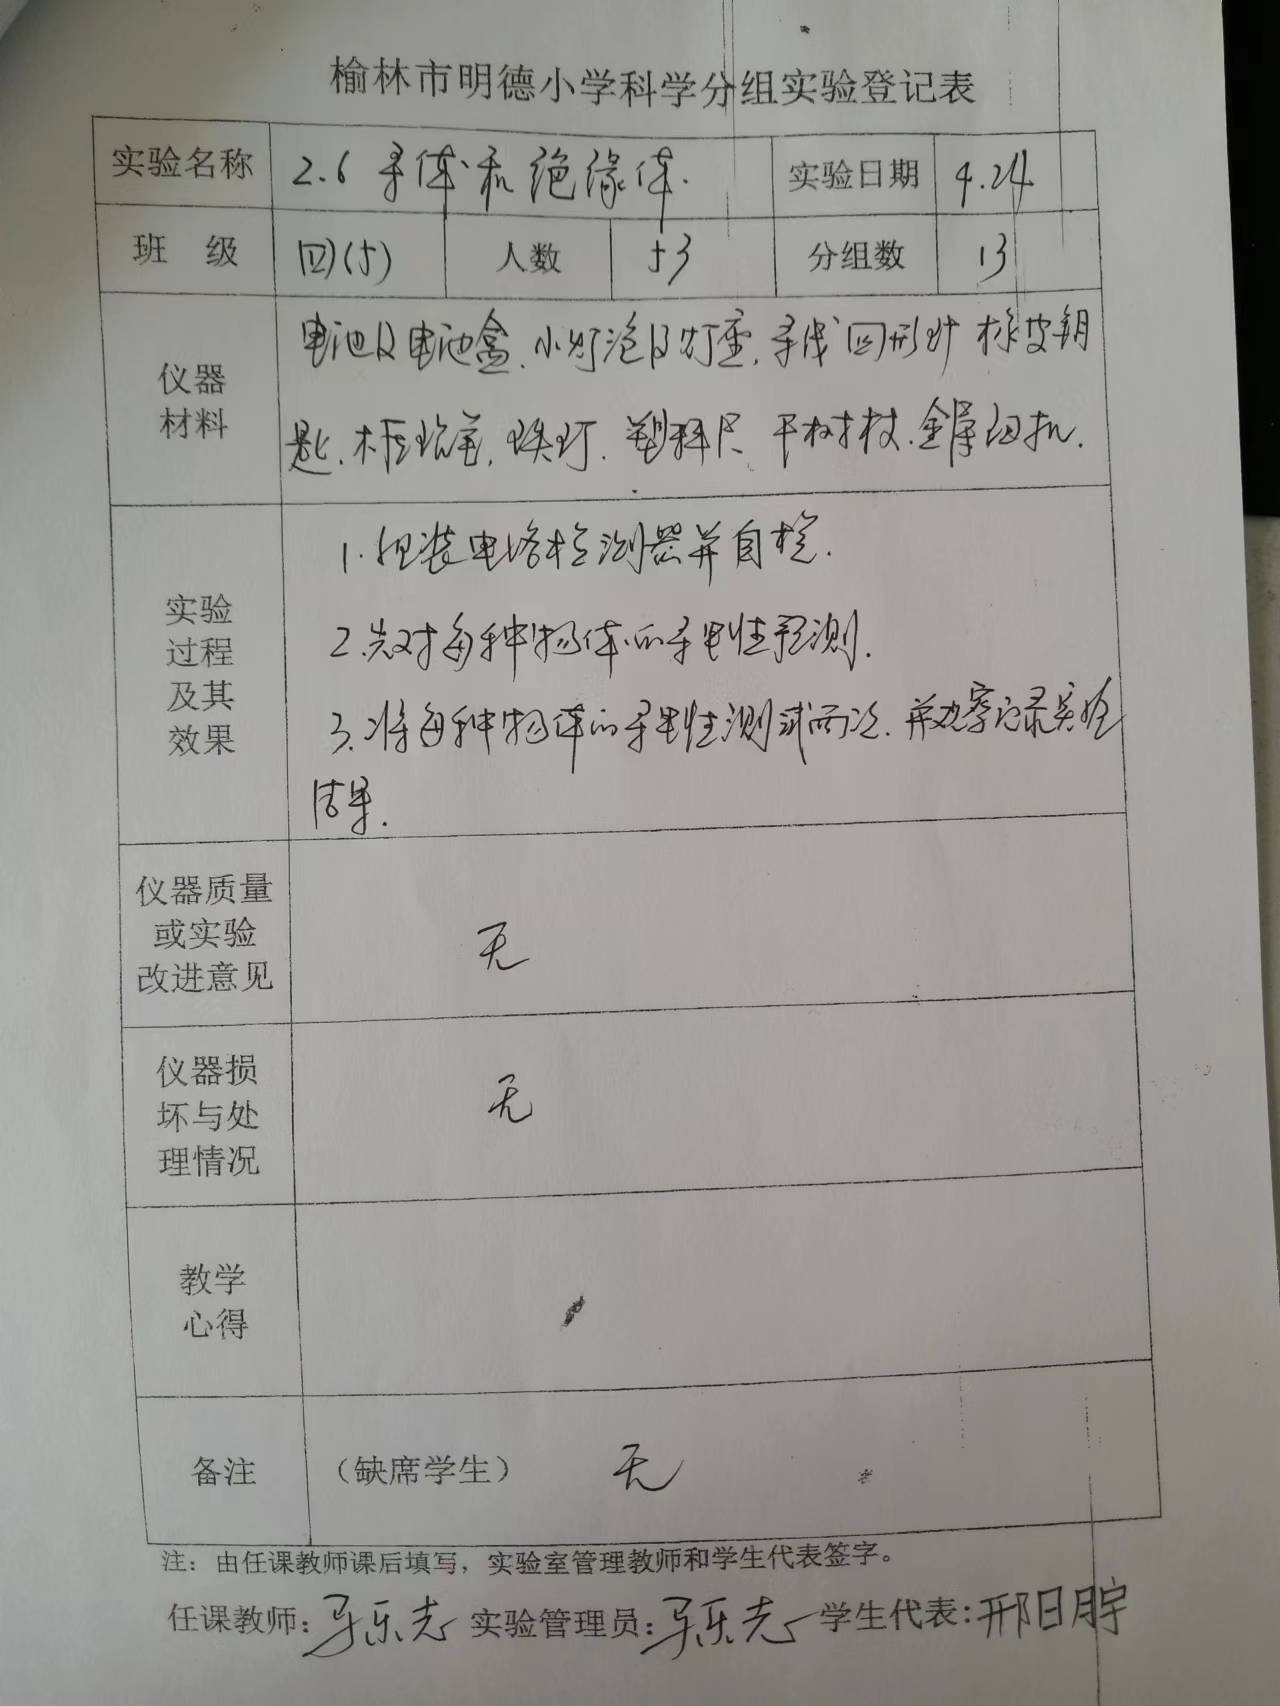 榆林市明德小学科学分组实验登记表
实验名称 2.6 导体和绝缘体. 实验日期 4.24
班 级 四(5) 人数 53 分组数 13
仪器
材料
电池及电池盒.小灯泡及灯座.导线 回形针 橡皮 钥
匙.木质铅笔.铁钉.塑料尺 干树枝.金属纽扣.
实验
过程
及其
效果
1.组装电路检测器并自检.
2.先对每种物体的导电性预测.
3.将每种物体的导电性测试两次.并观察记录实验
结果.
仪器质量
或实验
改进意见
无
仪器损
坏与处
理情况
无
教学
心得
备注 （缺席学生） 无
注：由任课教师课后填写，实验室管理教师和学生代表签字。
任课教师: 实验管理员: 学生代表:邢